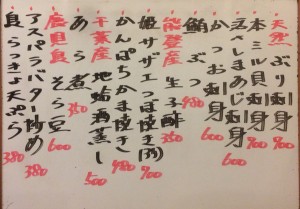 天然 ぶり刺身 900
本ミル貝刺身 900
立べしまあじ刺身 600
かつお刺身 480
鮪ぶつ
能登産 生子酢 350
姫サザエつぼ焼き(3ヶ) 700
かんぱちかま焼き 480
千葉産 地蛤酒蒸し 500
あら煮 350
鹿児島 そら豆 600
アスパラバター炒め 380
島らっきょ天ぷら 380